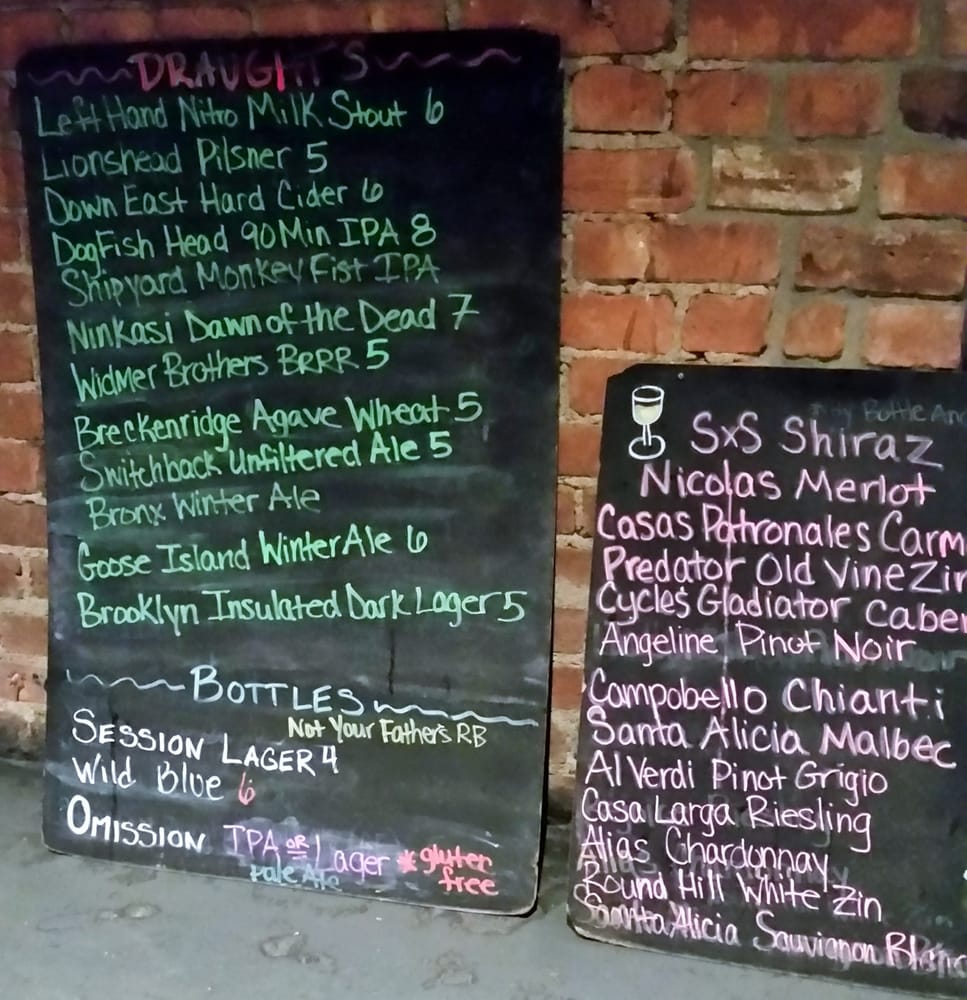 DRAUGHTS
Left Hand Nitro Milk Stout 6
Lionshead Pilsner 5
Down East Hard Cider 6
DogFish Head 90 Min IPA 8
Shipyard Monkey Fist IPA
Ninkasi Dawn of the Dead 7
Widmer Brothers BRRR 5
Breckenridge Agave Wheat 5
Switchback Unfiltered Ale 5
Bronx Winter Ale
Goose Island Winter Ale 6
Brooklyn Insulated Dark Lager 5
BOTTLES
Not Your Father's RB
SESSION LAGER 4
Wild Blue 6
OMISSION IPA OR Lager *gluten
Pale Ale free
Bottle
SxS Shiraz
Nicolas Merlot
Casas Patronales Carm
Predator Old Vine Zin
Cycles Gladiator Caber
Angeline Pinot Noir
Campobello Chianti
Santa Alicia Malbec
Al Verdi Pinot Grigio
Casa Larga Riesling
Alias Chardonnay
Round Hill White Zin
Santa Alicia Sauvignon Blanc